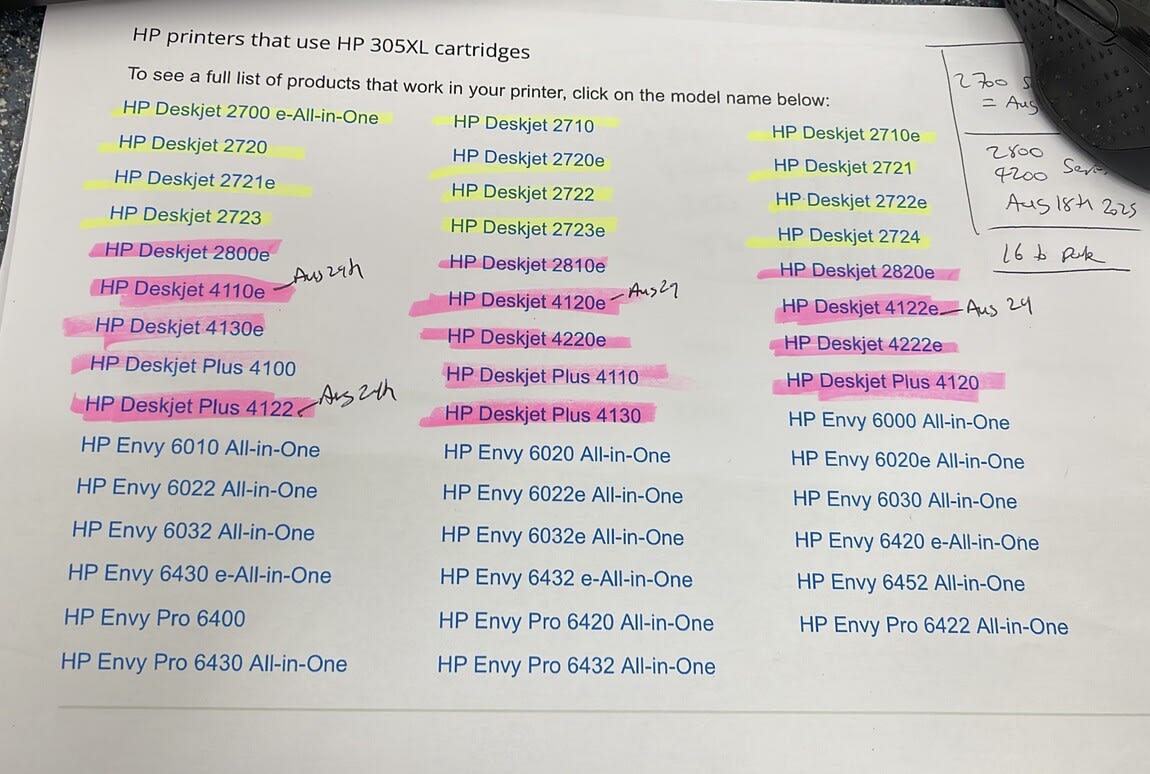 HP printers that use HP 305XL cartridges
To see a full list of products that work in your printer, click on the model name below:
HP Deskjet 2700 e-All-in-One HP Deskjet 2710 HP Deskjet 2710e
HP Deskjet 2720 HP Deskjet 2720e HP Deskjet 2721
HP Deskjet 2721e HP Deskjet 2722 HP Deskjet 2722e
HP Deskjet 2723 HP Deskjet 2723e HP Deskjet 2724
HP Deskjet 2800e HP Deskjet 2810e HP Deskjet 2820e
HP Deskjet 4110e HP Deskjet 4120e HP Deskjet 4122e Aug 24
HP Deskjet 4130e HP Deskjet 4220e HP Deskjet 4222e
HP Deskjet Plus 4100 HP Deskjet Plus 4110 HP Deskjet Plus 4120
HP Deskjet Plus 4122 HP Deskjet Plus 4130 HP Envy 6000 All-in-One
HP Envy 6010 All-in-One HP Envy 6020 All-in-One HP Envy 6020e All-in-One
HP Envy 6022 All-in-One HP Envy 6022e All-in-One HP Envy 6030 All-in-One
HP Envy 6032 All-in-One HP Envy 6032e All-in-One HP Envy 6420 e-All-in-One
HP Envy 6430 e-All-in-One HP Envy 6432 e-All-in-One HP Envy 6452 All-in-One
HP Envy Pro 6400 HP Envy Pro 6420 All-in-One HP Envy Pro 6422 All-in-One
HP Envy Pro 6430 All-in-One HP Envy Pro 6432 All-in-One
2700
= Aug
2800
4200
Aug 18th 2025
16